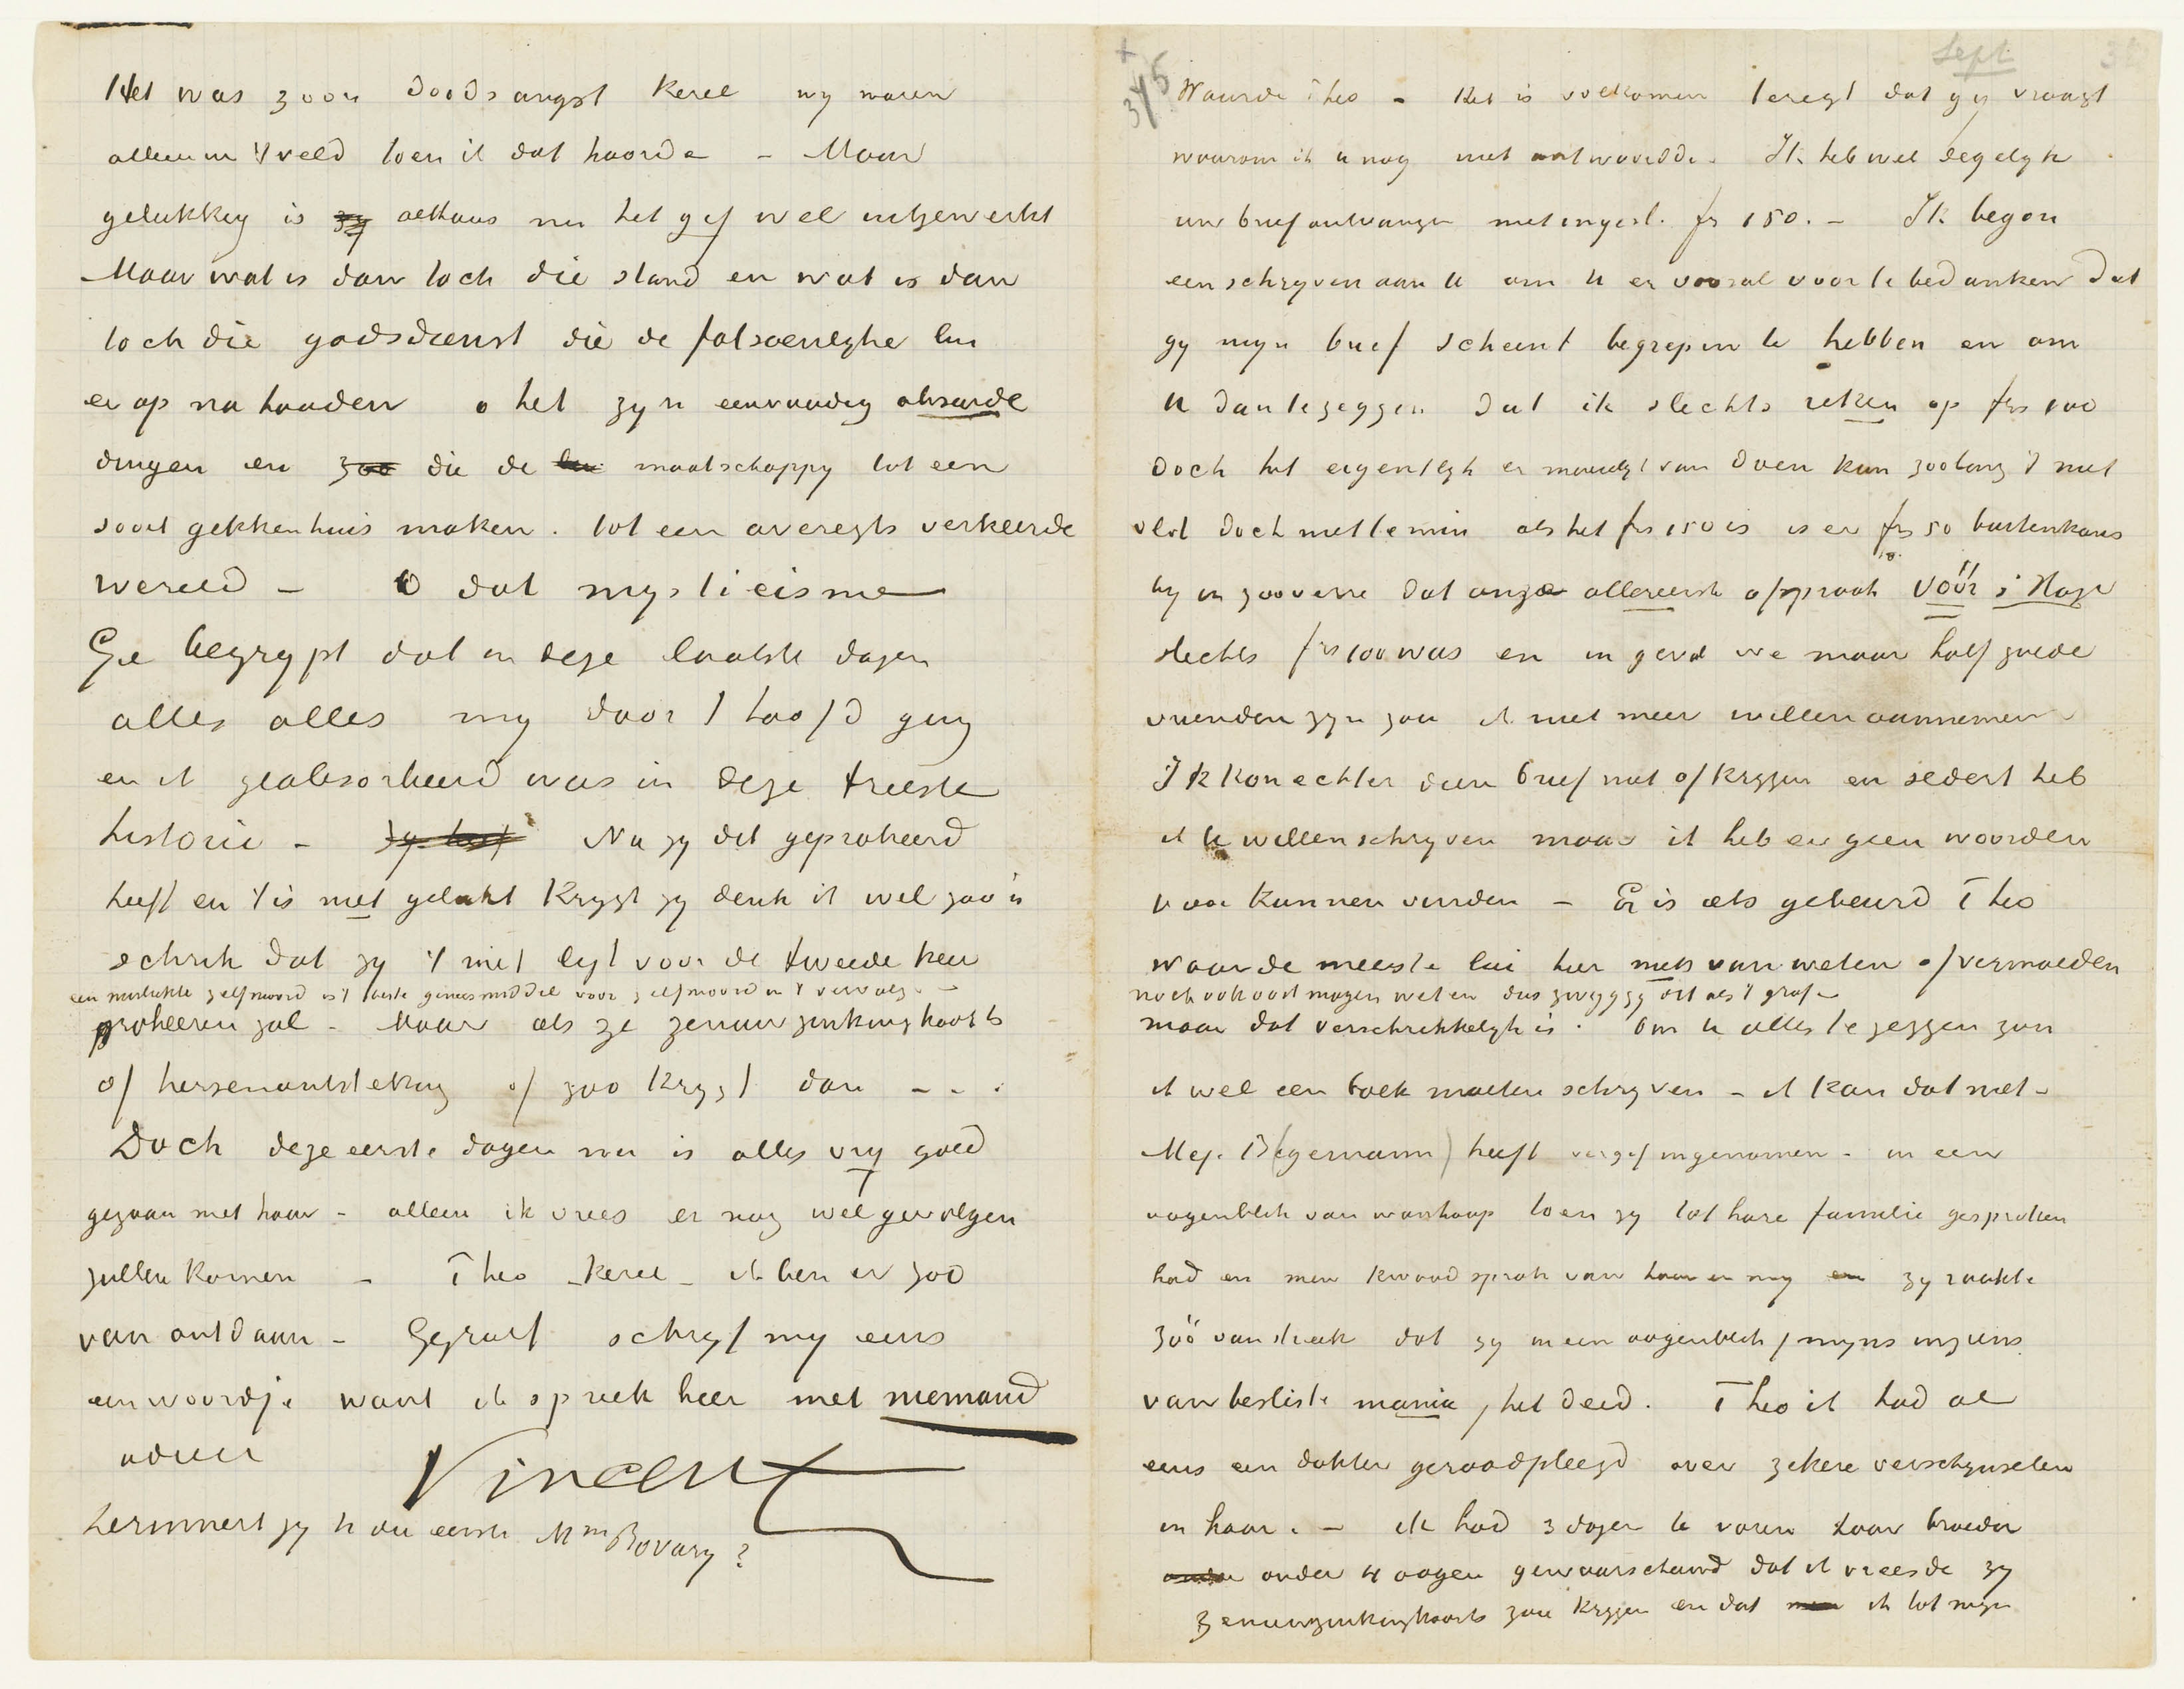 Het was zoon doodsangst kerel wy waren
alleen in 't veld toen ik dat hoorde – Maar
gelukkig is zy althans nu het gif wel uitgewerkt
Maar wat is dan toch die stand en wat is dan
toch die godsdienst die de fatsoenlyke lui
er op na houden o het zyn eenvoudig absurde
dingen en zoo die de lui maatschappy tot een
soort gekkenhuis maken. tot een averegts verkeerde
wereld – O dat mysticisme
Ge begrypt dat in deze laatste dagen
alles alles my door 't hoofd ging
en ik geabsorbeerd was in deze trieste
historie – zy heeft Nu zy dit geprobeerd
heeft en 't is niet gelukt krygt zy denk ik wel zoo'n
schrik dat zy 't niet ligt voor de tweede keer
een mislukte zelfmoord is 't beste geneesmiddel voor zelfmoord in 't vervolg –
probeeren zal – Maar als ze zenuwzinkingkoorts
of hersenontsteking of zoo krygt dan – – .
Doch deze eerste dagen nu is alles vry goed
gegaan met haar – alleen ik vrees er nog wel gevolgen
zullen komen – Theo – kerel – ik ben er zoo
van ontdaan – Gegroet schryf my eens
een woordje want ik spreek hier met niemand
adieu
Vincent
herinnert gy u die eerste Mm Bovary?
Sept.
345
Waarde Theo – Het is volkomen teregt dat gy vraagt
waarom ik u nog niet antwoordde. Ik heb wel degelyk
uw brief ontvangen met ingesl. fr 150. – Ik begon
een schryven aan u om u er vooral voor te bedanken dat
gy myn brief scheent begrepen te hebben en om
u dan te zeggen dat ik slechts reken op frs 100
doch het eigentlyk er moeielyk van doen kan zoolang 't niet
vlot doch niettemin als het frs 150 is is er frs 50 buitenkans
by in zooverre dat onze allereerste afspraak vóór 's Hage
slechts frs 100 was en in geval we maar half goede
vrienden zyn zou ik niet meer willen aannemen.
Ik kon echter dien brief niet afkrygen en sedert heb
ik u willen schryven maar ik heb er geen woorden
voor kunnen vinden – Er is iets gebeurd Theo
waar de meeste lui hier niets van weten of vermoeden
noch ooit mogen weten dus zwyg gy ort als 't graf –
maar dat verschrikkelyk is. Om u alles te zeggen zou
ik wel een boek moeten schryven – ik kan dat niet –
Mej. B(egemann) heeft vergif ingenomen – in een
oogenblik van wanhoop toen zy tot hare familie gesproken
had en men kwaad sprak van haar en my en zy raakte
zóó van streek dat zy in een oogenblik, myns inziens
van besliste manie, het deed. Theo ik had al
eens een dokter geraadpleegd over zekere verschynselen
in haar. – ik had 3 dagen te voren haar broeder
onder onder 4 oogen gewaarschuwd dat ik vreesde zy
zenuwzinkingkoorts zou krygen en dat men ik tot myn